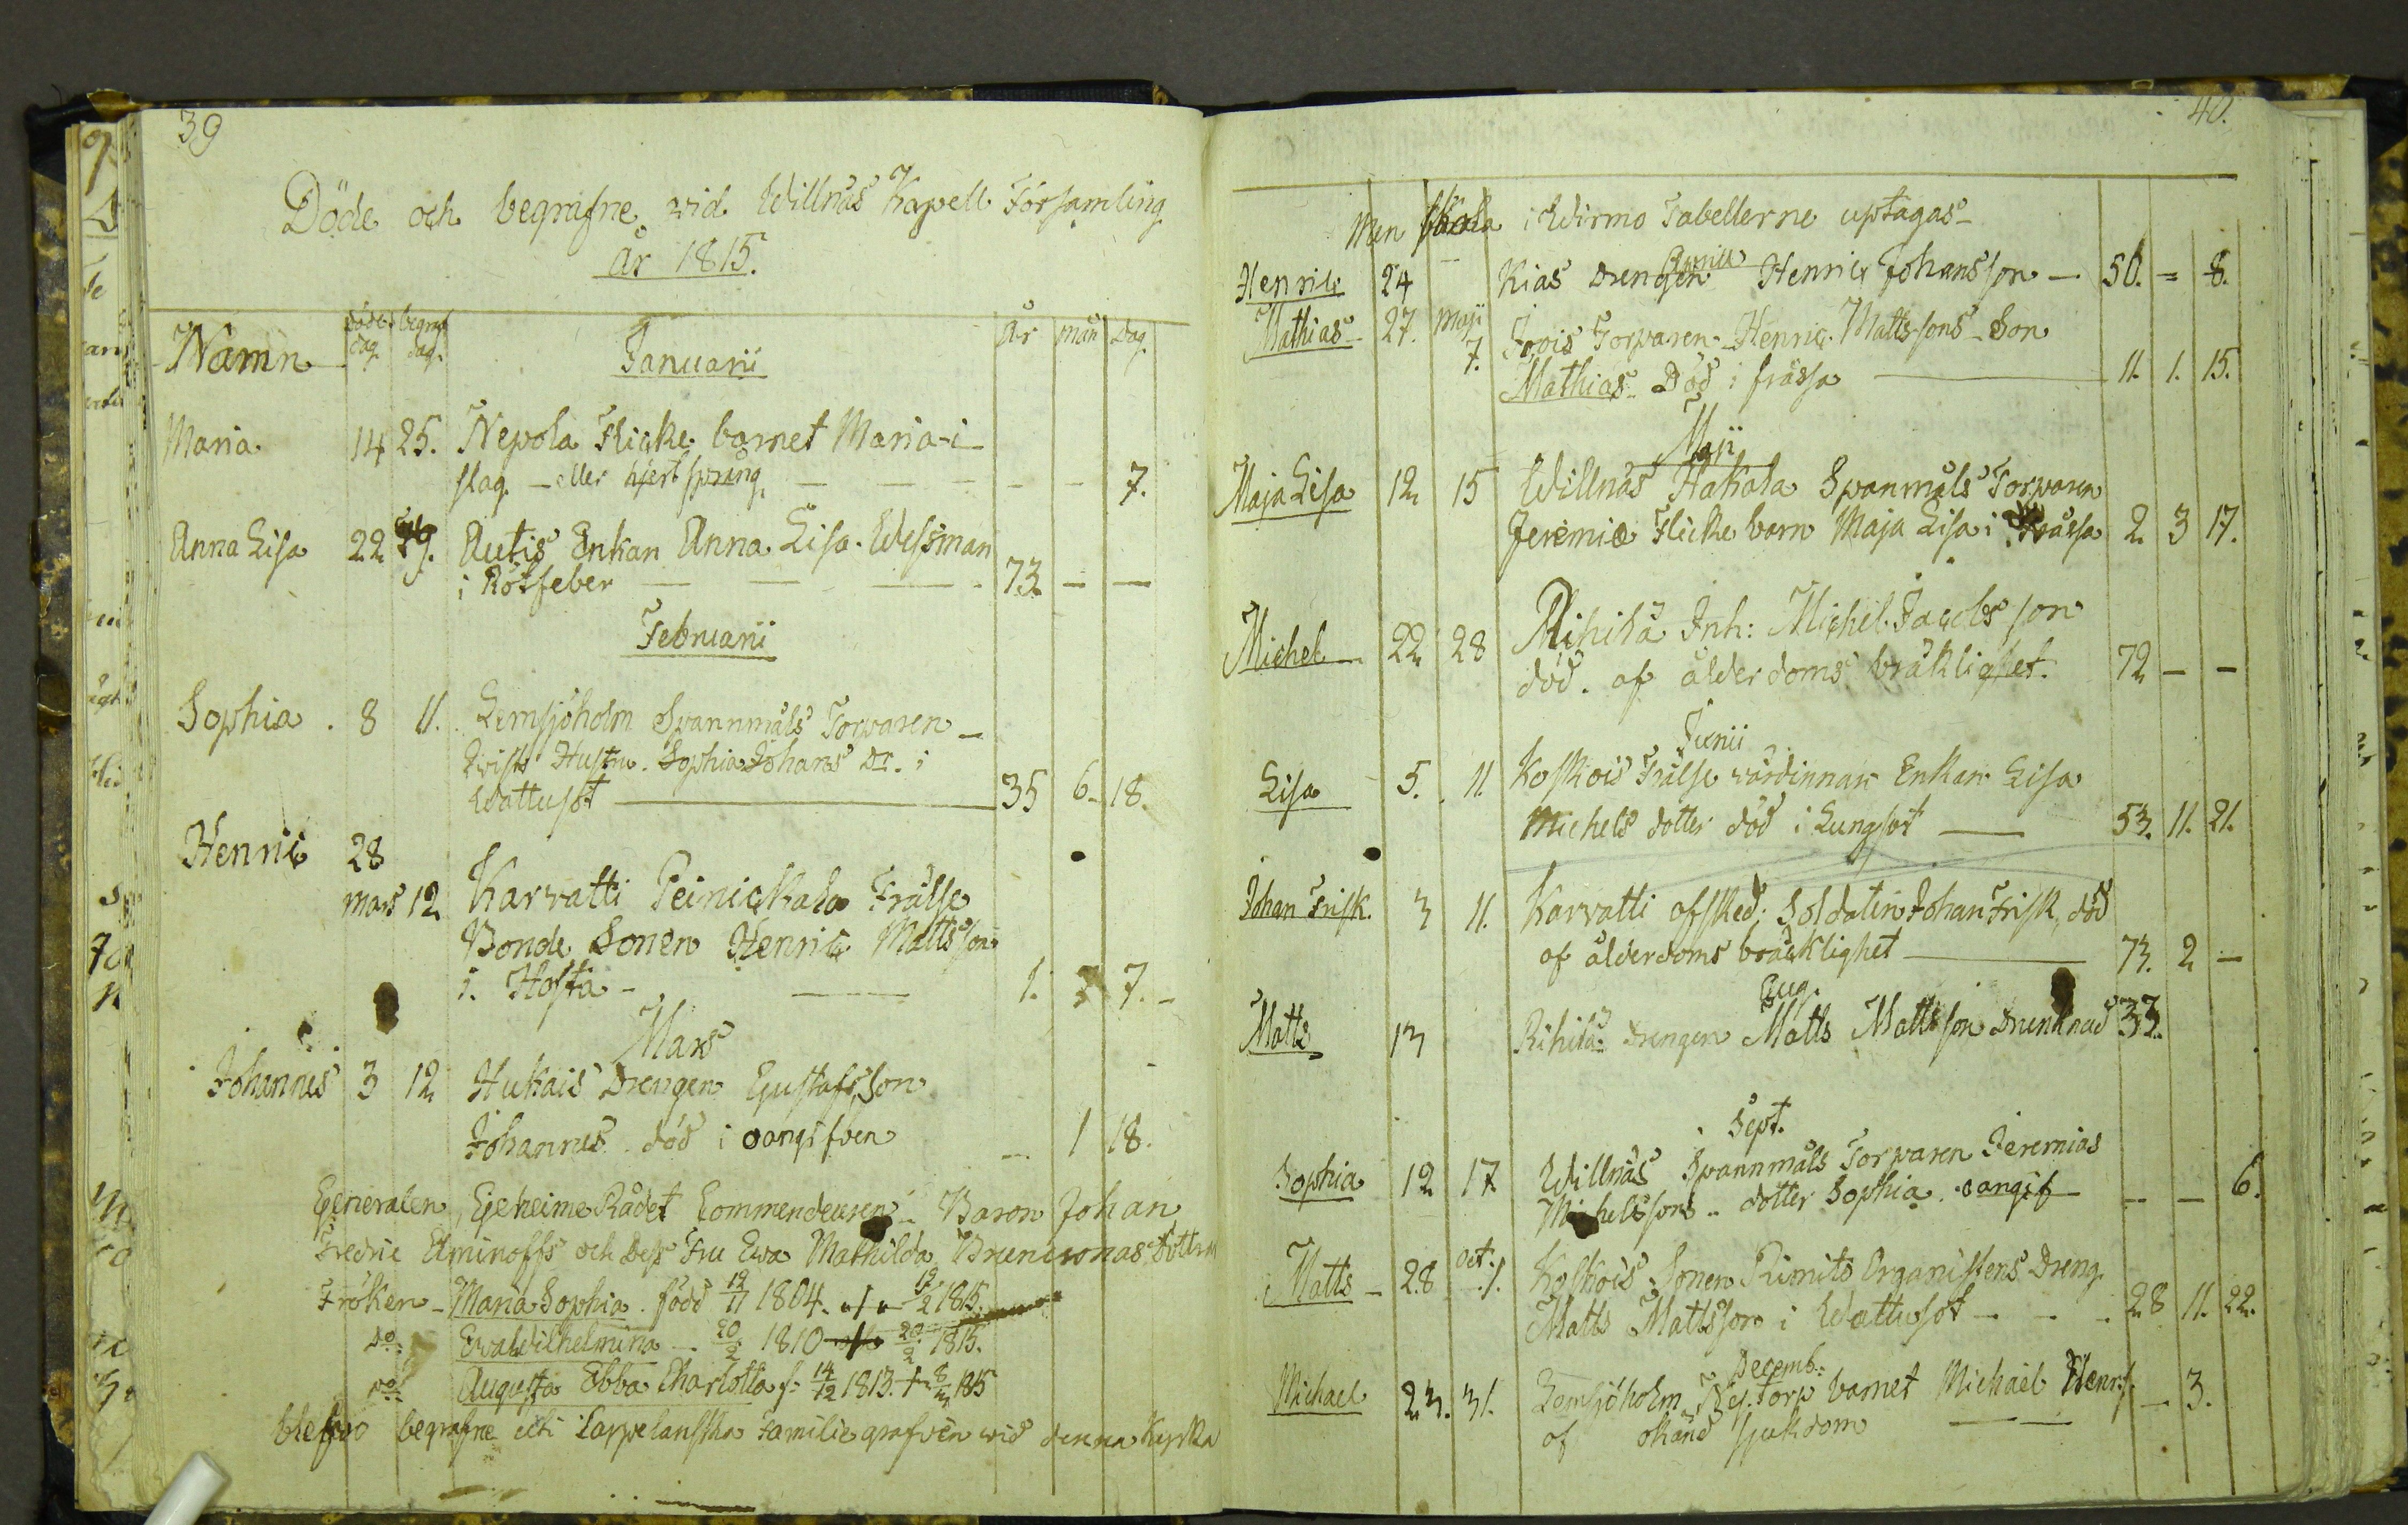 39
Döde och begrafne wid Willnäs Kapell Församling
År 1815.
Namn döde dag. begraf dag. Januarii år mån dag
Maria 14 25. Nepola Flicke barnet Maria i
slag. - eller hjertsprång. - - - - - 7.
Anna Lisa 22 29. Autis Enkan Anna Lisa Wessman
i Rötfeber - - - 73 - -
Februarii
Sophia. 8 11. Lemsjöholm Spannmåls Torparen
Hustru Sophia Johans Dr. i
Wattusot 35 6 18.
Henric 28
mars 12 Karvatti Peinickala Frälse
Bonde Sonen Henric Mattsson
i Hosta - 1. 7.
Mars
Johannes 3 12 Hukais Drengen Gustafs Son
Johannes död i oangifven - 1 18.
Generalen, Geheime Rådet Commendeuren Baron Johan
Fredric Aminoffs och Dess Fru Ewa Mathilda Bruncronas Döttrar
Fröken - Maria Sophia. född 19/11 1804 19/2 1815.
Do. Ewa Wilhelmina - 20/2 1810 20/2 1815.
Do. Augusta Ebba Charlotta f. 14/12 1813 † 8/3 1815
blefvo begrafne uti Lappelanska Familie grafven wid denna Kyrka
40.
Men skola i Wirmo Tabellerne uptagas
Henric 24 Kias Drengen Henric Johansson - 50. = 8.
Mathias 27. Maji
7. Torparen Henric Mattssons Son
Mathias Död i frässa 11. 1. 15.
Maji
Maja Lisa 12 15 Willnäs Hakala Spanmåls Torparen
Jeremiæ Flicke barn Maja Lisa i frässa 2. 3 17.
Michel 22 28 Rihilä Inh: Michel Jacobsson
död. af ålderdoms bräklighet. 72 - -
Junii
Lisa 5. 11. Koskois Frälse värdinnan Enkan Lisa
Michels dotter död i Lungsot - 53. 11. 21.
Johan Frisk. 3 11. Karvatti afsked: Soldaten Johan Frisk, död
af ålderdoms bräcklighet 73. 2 -
Aug.
Matts 13 Rihilä Drengen Matts Mattsson Drunknad 33.
Sept.
Sophia 12 17 Willnäs Spannmåls Torparen Jeremias
Michelssons dotter Sophia. oangif - - 6.
Matts - 28. Oct. 1. Koskois Sonen Rimito Organistens Dreng
Matts Mattsson i Wattusot - - - 28 11. 22.
Decemb:
Michael 23. 31. Lemsjöholm Ny Torp barnet Michael Henr:s - 3.
af okänd sjukdom